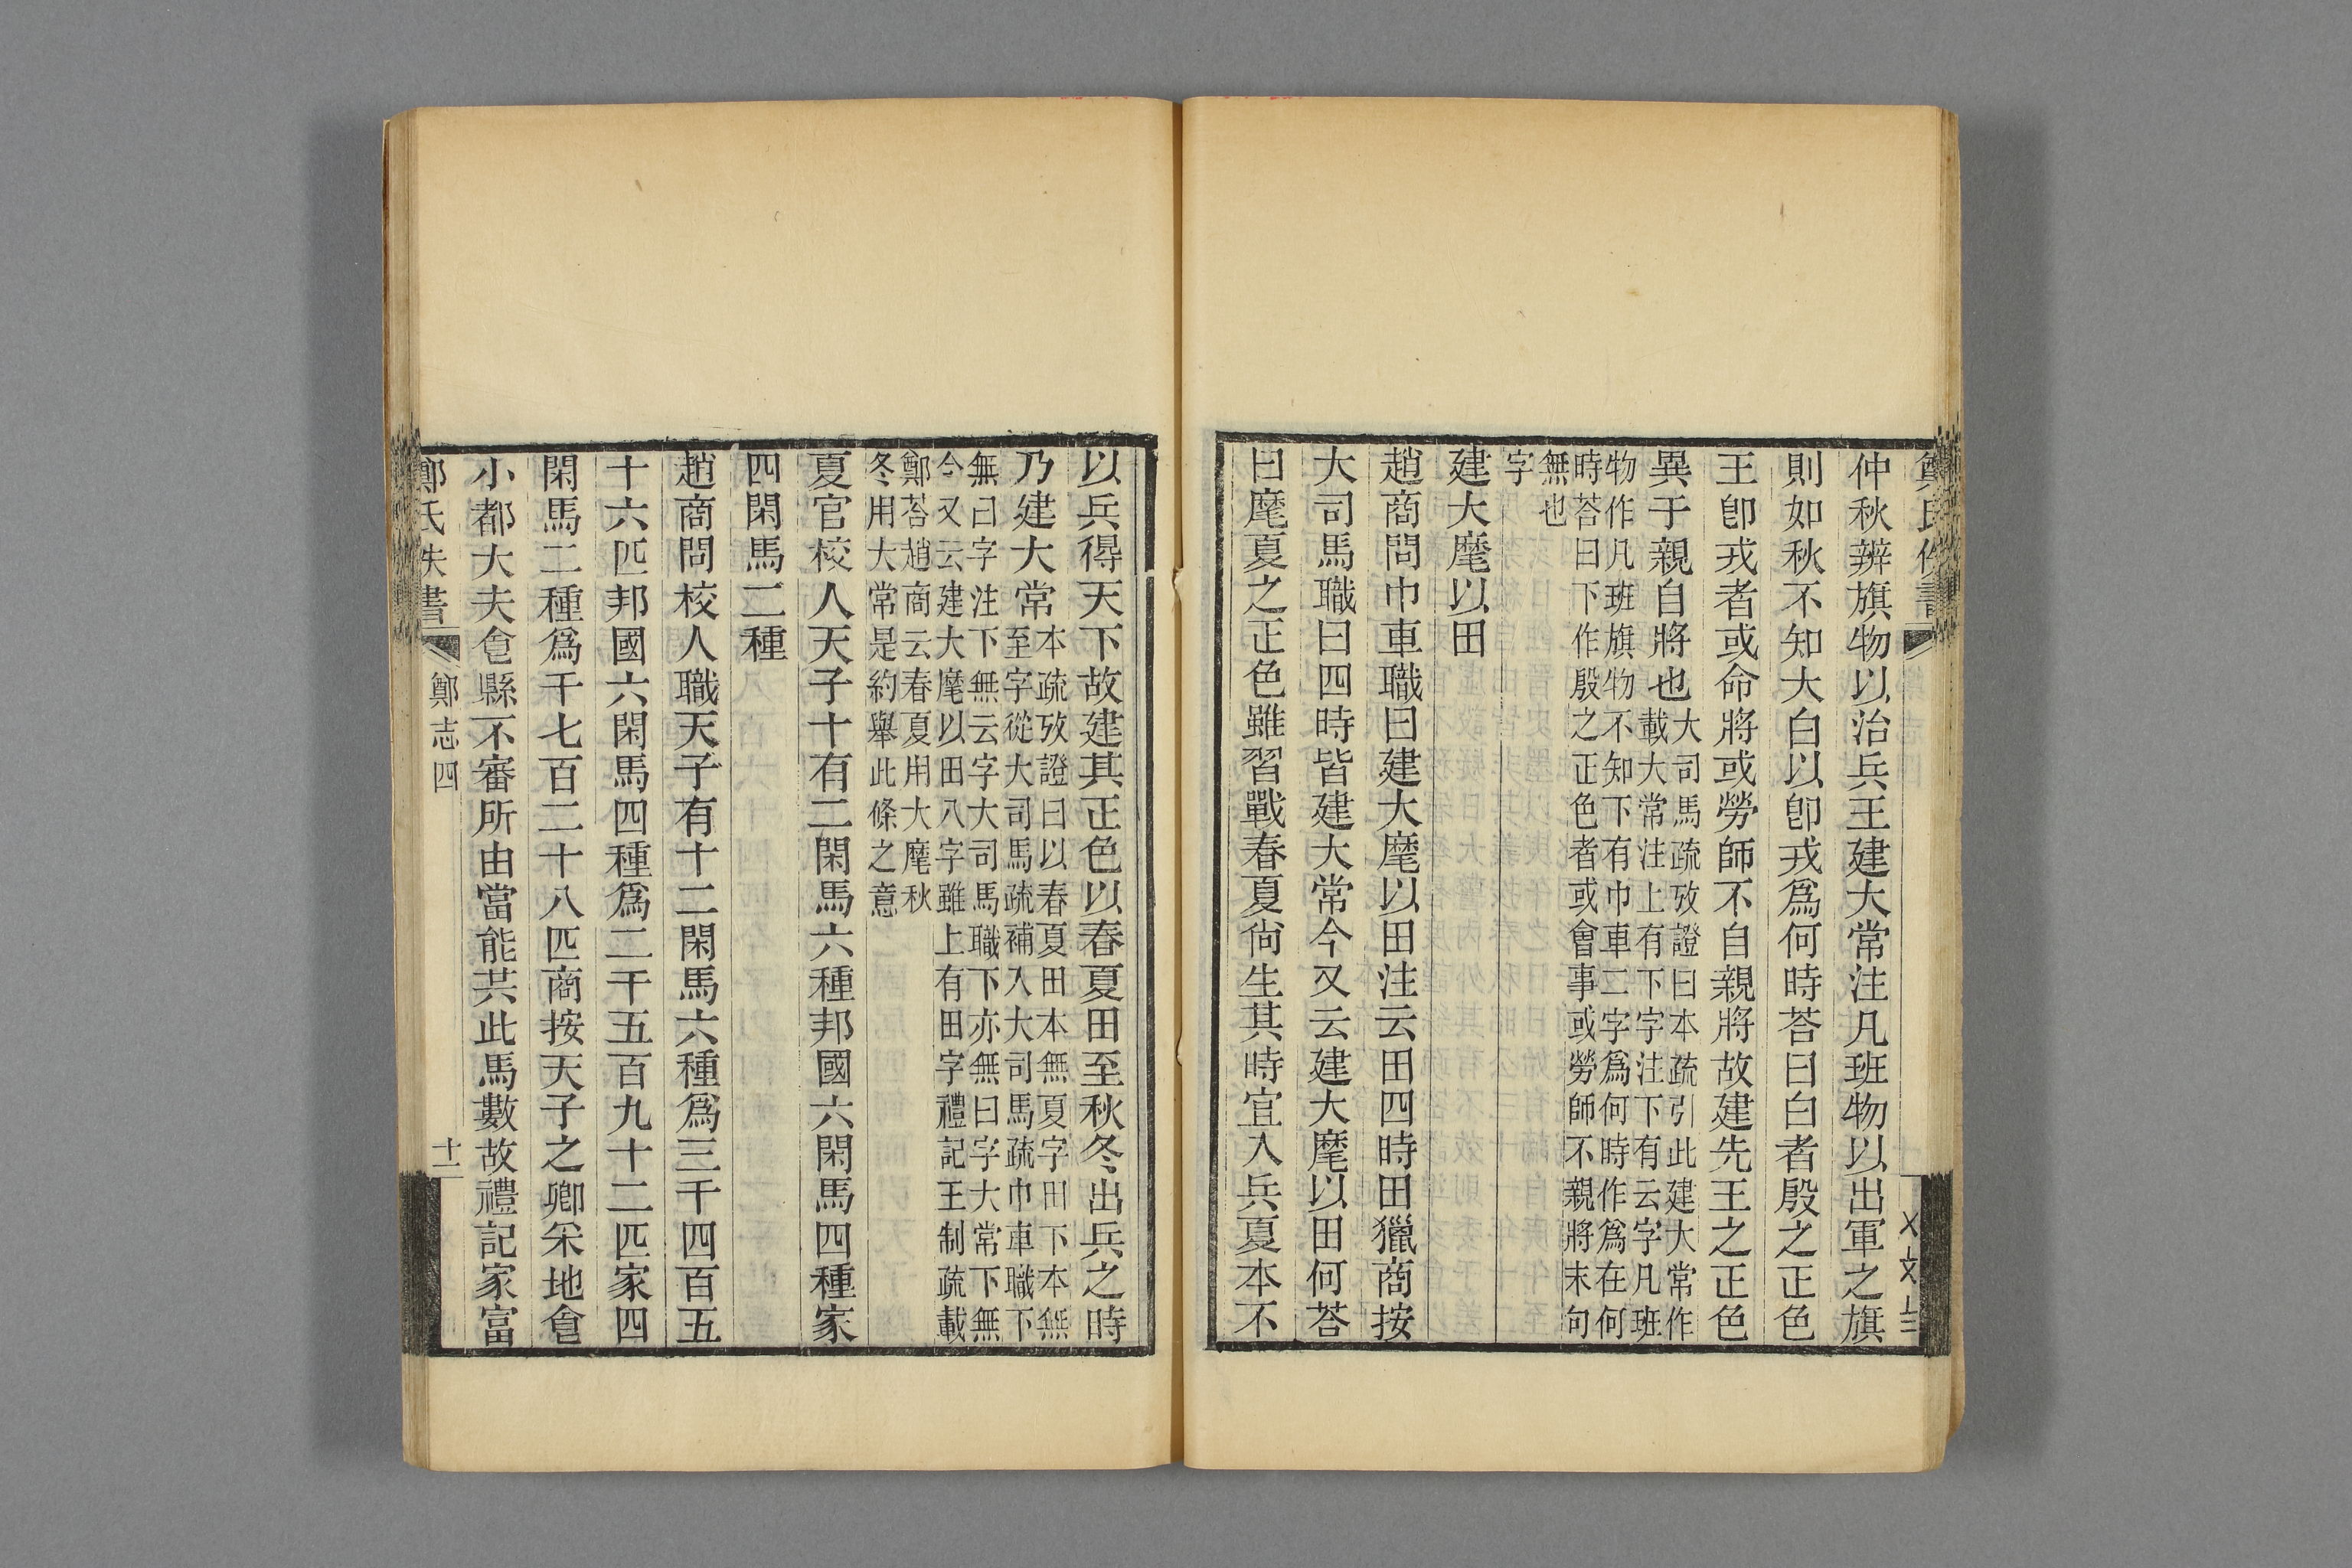 鄭氏佚書
仲秋辨旗物以治兵王建大常注凡班物以出軍之旗
則如秋不知大白以卽戎爲何時荅曰白者殷之正色
王卽戎者或命將或勞師不自親將故建先王之正色
異于親自將也大司馬疏攷證曰本疏引此建大常作
載大常注上有下字注下有云字凡班
物作凡班旗物不知下有巾車二字爲何時作爲在何
時荅曰下作殷之正色者或會事或勞師不親將末句
無也
字
建大麾以田
趙商問巾車職曰建大麾以田注云田四時田獵商按
大司馬職曰四時皆建大常今又云建大麾以田何荅
曰麾夏之正色雖習戰春夏尙生其時宜入兵夏本不
以兵得天下故建其正色以春夏田至秋冬出兵之時
乃建大常本疏攷證曰以春夏田本無夏字田下本無
至字從大司馬疏補入大司馬疏巾車職下
無曰字注下無云字大司馬職下亦無曰字大常下無
今又云建大麾以田八字雖上有田字禮記王制疏載
鄭荅趙商云春夏用大麾秋
冬用大常是約舉此條之意
夏官校人天子十有二閑馬六種邦國六閑馬四種家
四閑馬二種
趙商問校人職天子有十二閑馬六種爲三千四百五
十六匹邦國六閑馬四種爲二千五百九十二匹家四
閑馬二種爲千七百二十八匹商按天子之卿采地食
小都大夫食縣不審所由當能共此馬數故禮記家富
鄭氏佚書
鄭志四
十二